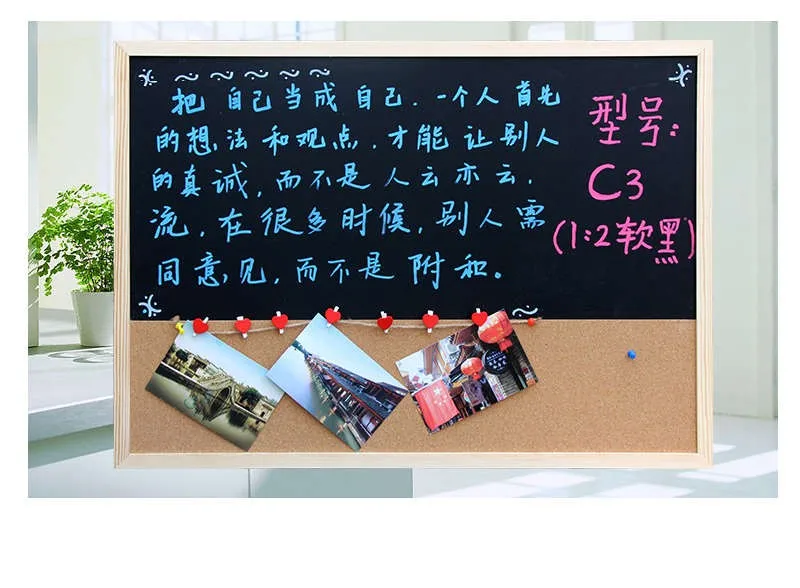 把自己当成自己.一个人首先
的想法和观点,才能让别人
的真诚,而不是人云亦云.
流,在很多时候,别人需
同意见,而不是附和。
型号:
C3
(1:2软黑)